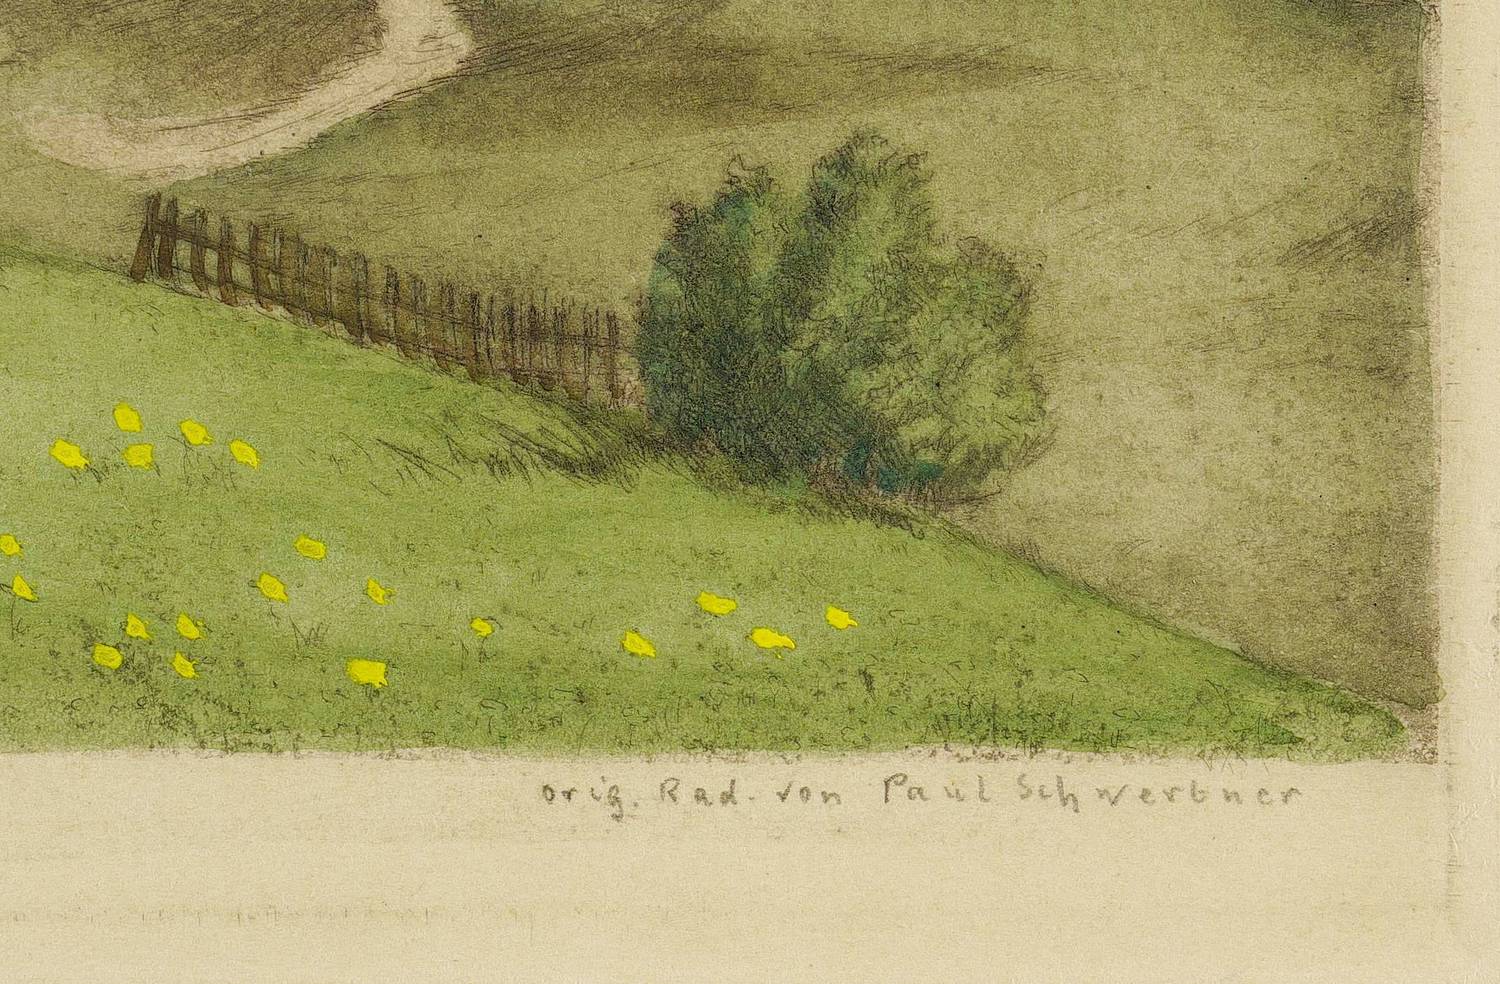 orig. Rad. von Paul Schwerbner